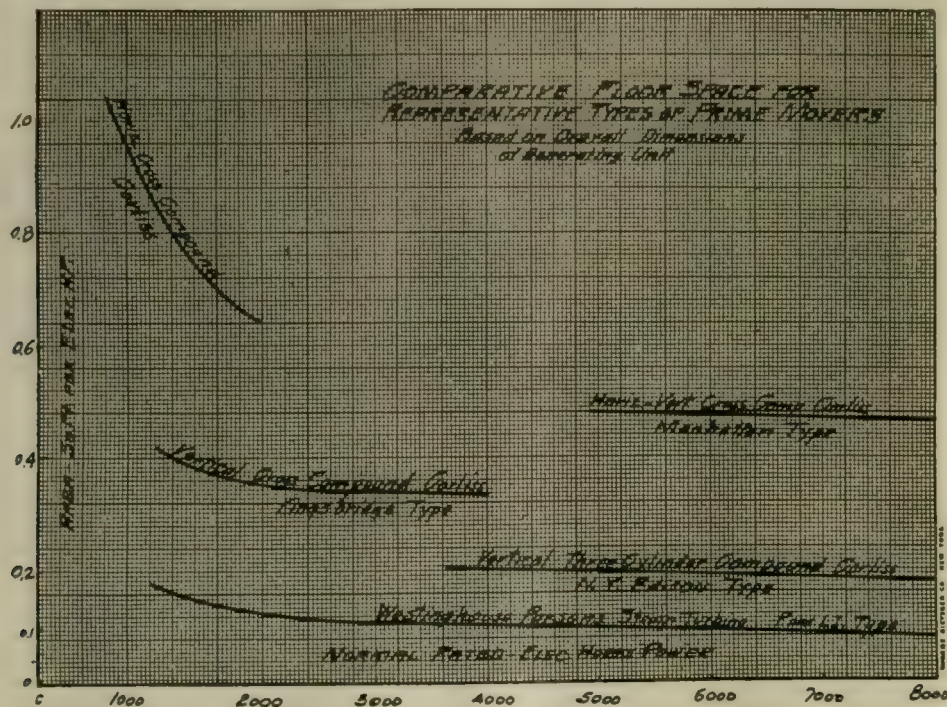 COMPARATIVE FLOOR SPACE FOR
REPRESENTATIVE TYPES OF PRIME MOVERS
Based on Overall Dimensions
of Generating Unit
Horiz. Cross Compound
Corliss
AREA - SQ. FT. PER ELEC. H.P.
1.0
0.8
0.6
0.4
0.2
0.1
0
Horiz-Vert Cross Comp Corliss
Manhattan Type
Vertical Cross Compound Corliss
Kingsbridge Type
Vertical Three Cylinder Compound Corliss
N.Y. Edison Type
Westinghouse Parsons Steam Turbine Type
NORMAL RATED ELEC. HORSE POWER
0 1000 2000 3000 4000 5000 6000 7000 8000
NEW YORK